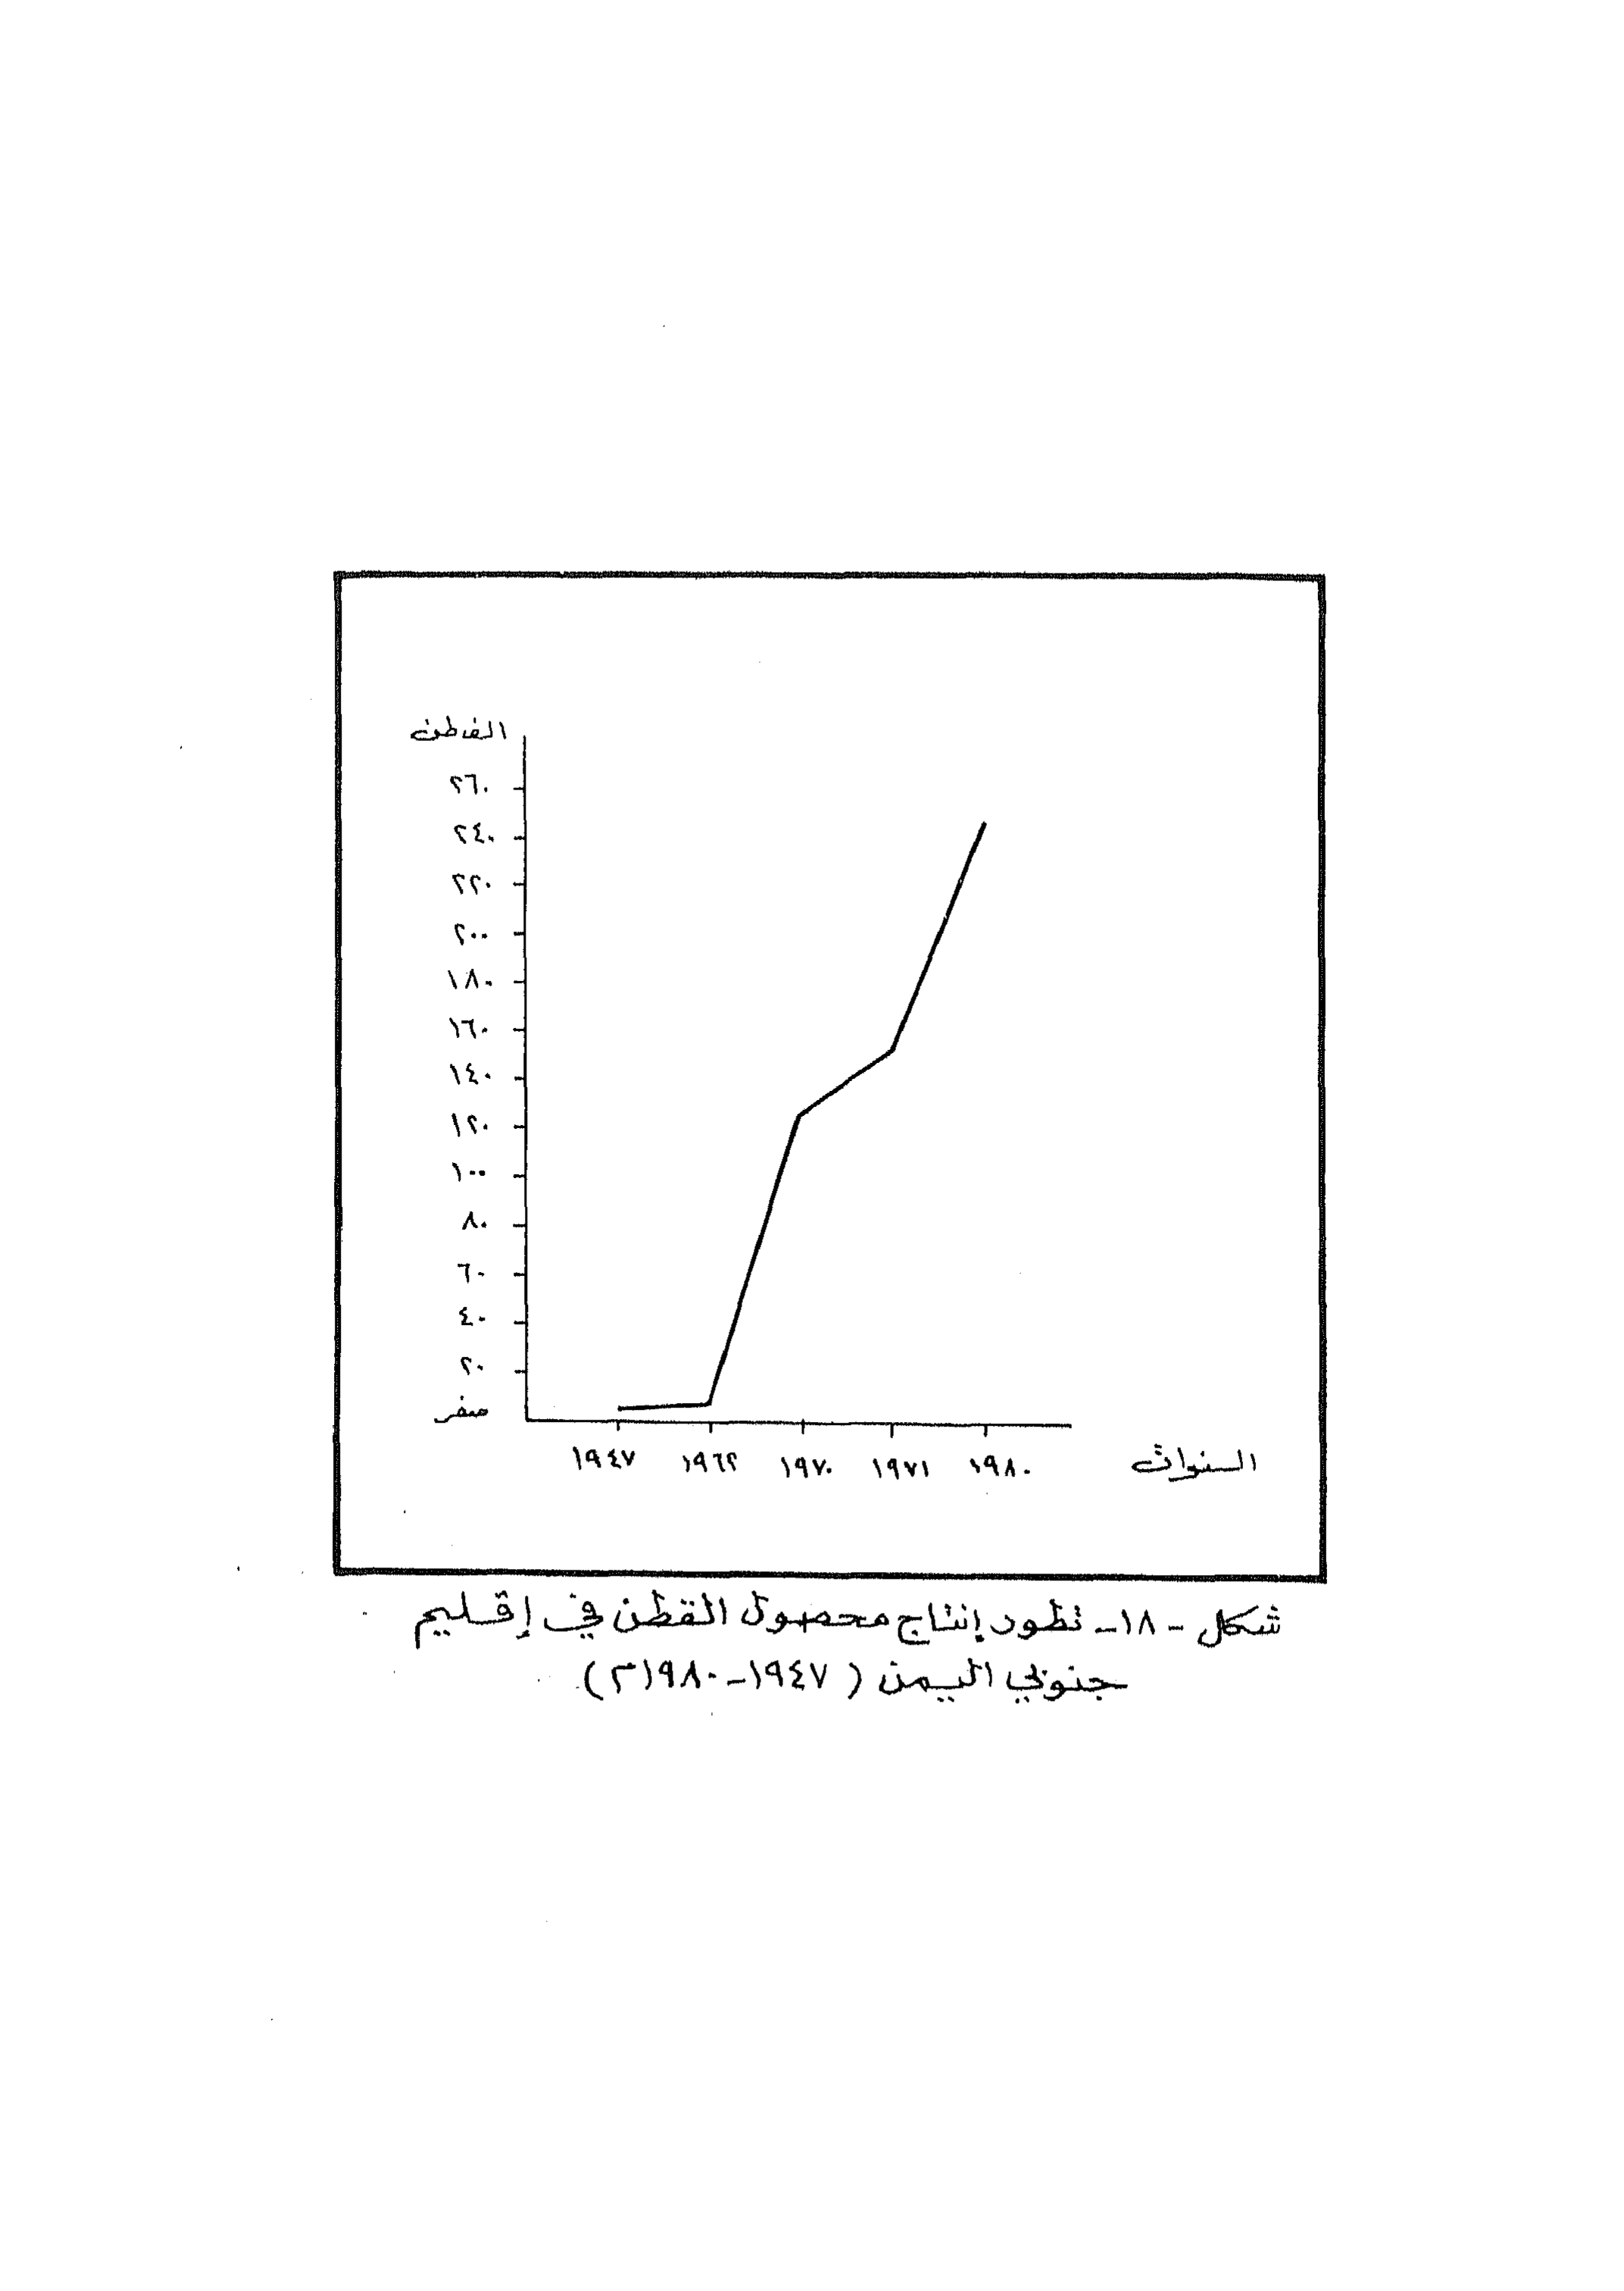 القطن
٢٦٠
٢٤٠
٢٢٠
٢٠٠
١٨٠
١٦٠
١٤٠
١٢٠
١٠٠
٨٠
٦٠
٤٠
٢٠
صفر
١٩٤٧ ١٩٦٢ ١٩٧٠ ١٩٧١ ١٩٨٠ السنوات
شكل - ١٨ - تطور إنتاج محصول القطن في إقليم
جنوبي اليمن ( ١٩٤٧ - ١٩٨٠م )